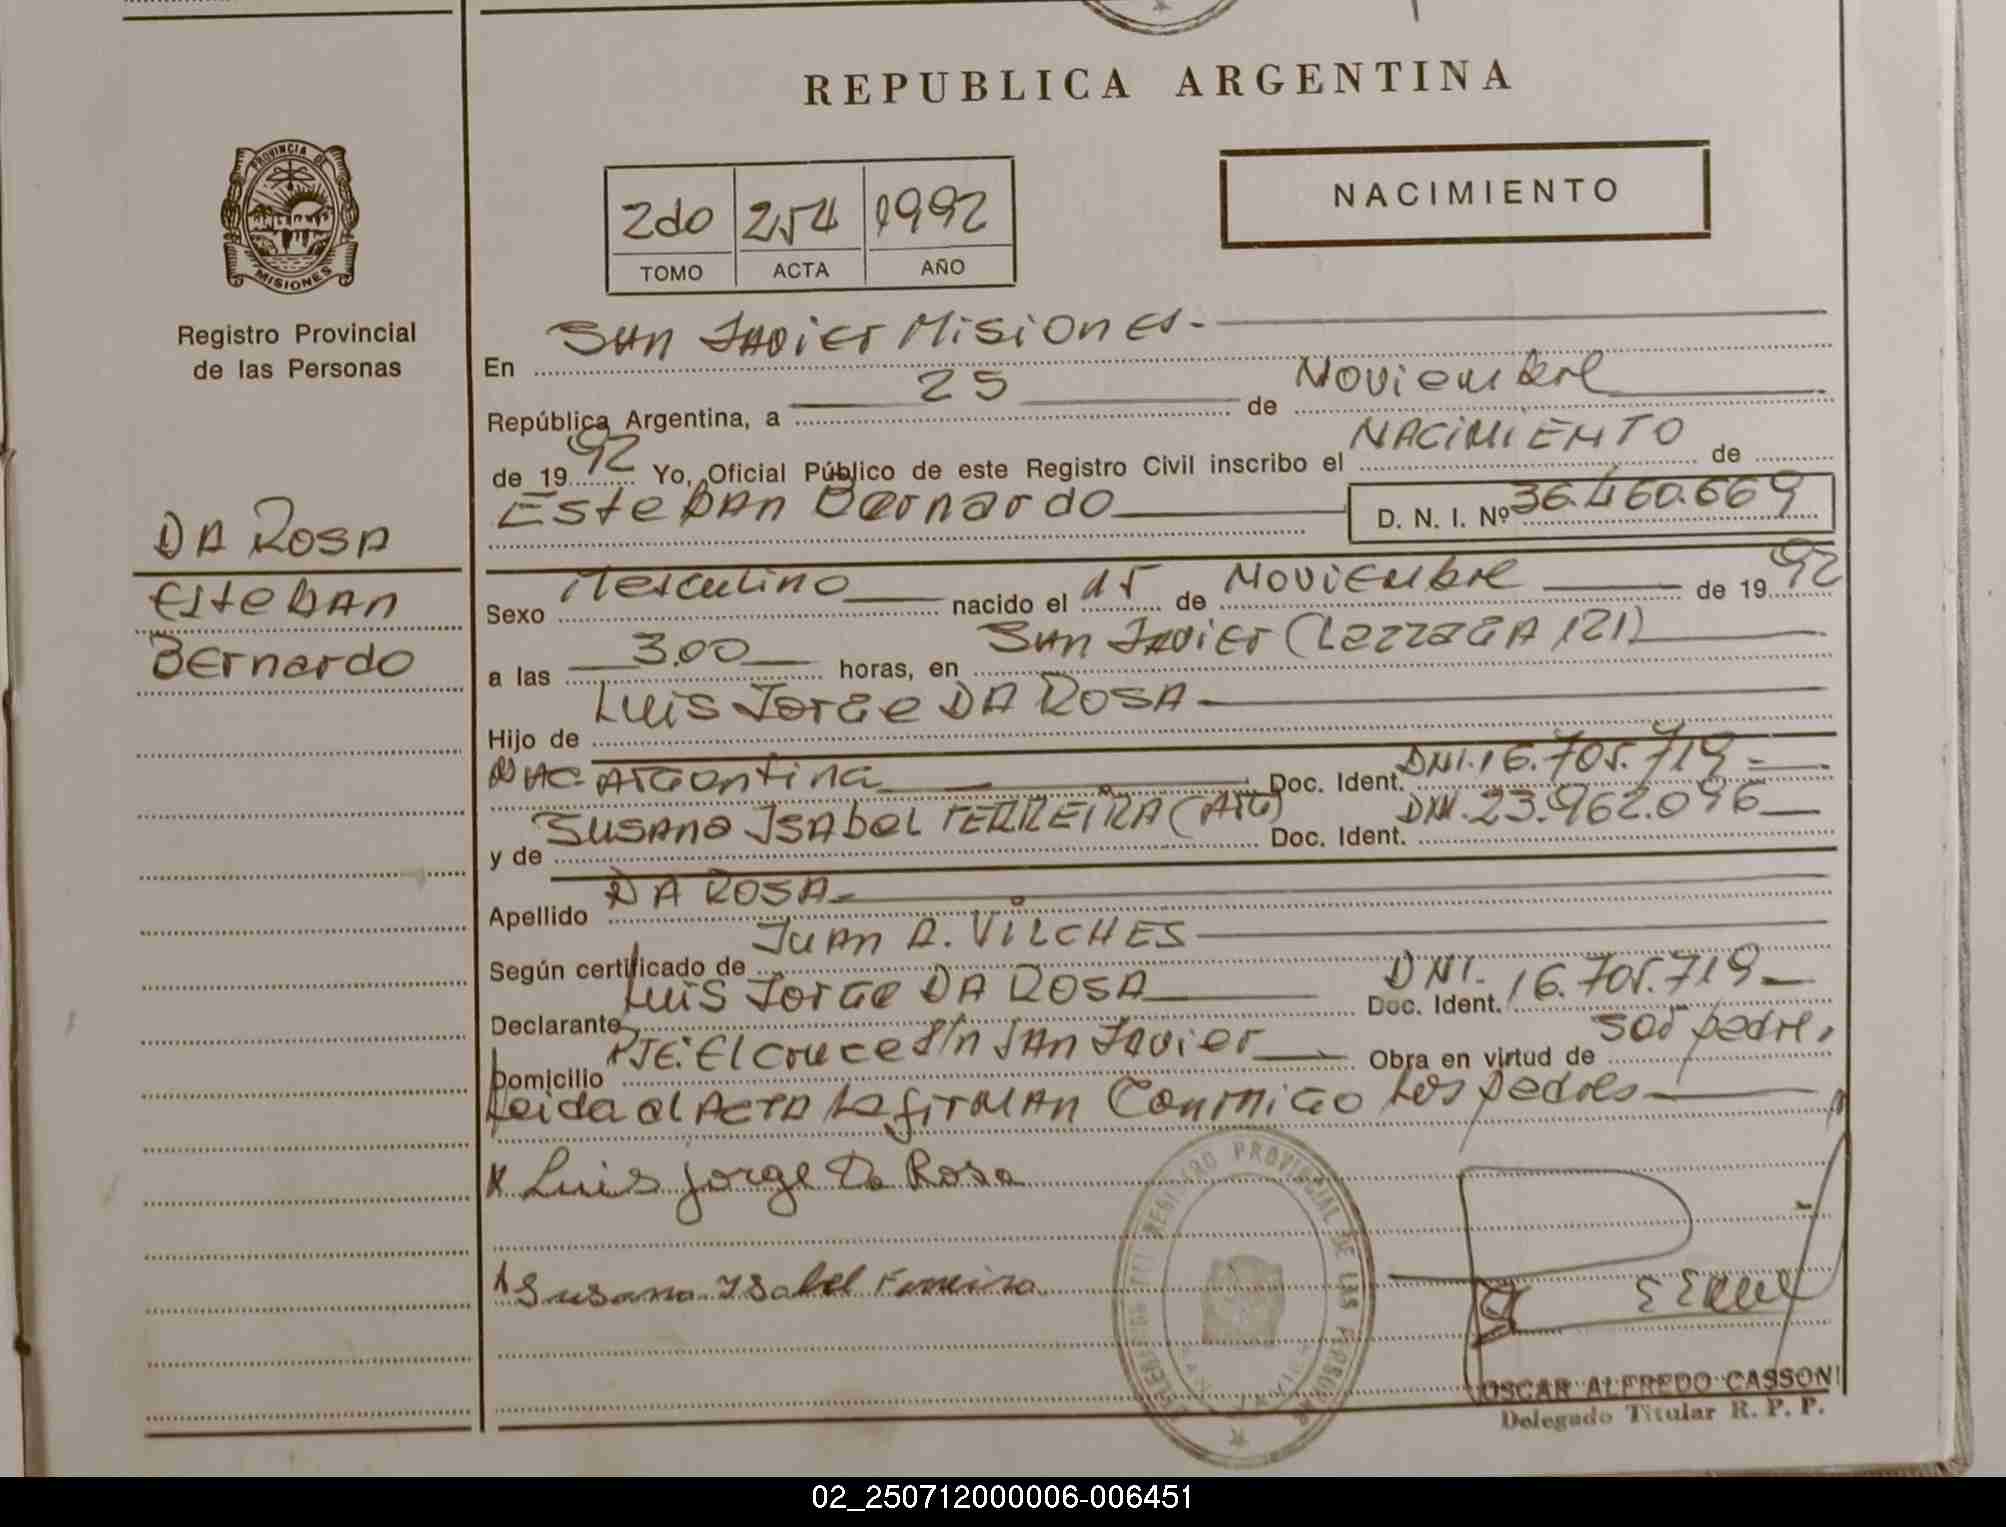 REPUBLICA ARGENTINA
PROVINCIA DE
MISIONES
Registro Provincial
de las Personas
2do 254 1992
TOMO ACTA AÑO
NACIMIENTO
En San Javier Misiones-
República Argentina, a 25 de Noviembre
de 1992 Yo, Oficial Público de este Registro Civil inscribo el NACIMIENTO de
Esteban Bernardo D. N. I. Nº 36.460.669
DA ROSA
Esteban
Bernardo
Sexo Masculino nacido el 15 de Noviembre de 1992
a las 3.00 horas, en San Javier 121)
Hijo de Luis Jorge DA ROSA
Nac. Argentina Doc. Ident. DNI. 16.705.719-
y de Susana Isabel FERREIRA (Arg) Doc. Ident. DNI. 23.962.096
Apellido DA ROSA
Según certificado de Juan A. VILCHES
Declarante Luis Jorge DA ROSA Doc. Ident. DNI. 16.705.719-
Domicilio Pje. El Cruce S/n San Javier Obra en virtud de
Leida el Acta la firman Conmigo los padres
x Luis Jorge Da Rosa
Susana Ysabel Ferreira
REGISTRO PROVINCIAL DE LAS PERSONAS
OSCAR ALFREDO CASSONI
Delegado Titular R. P. P.
02_250712000006-006451